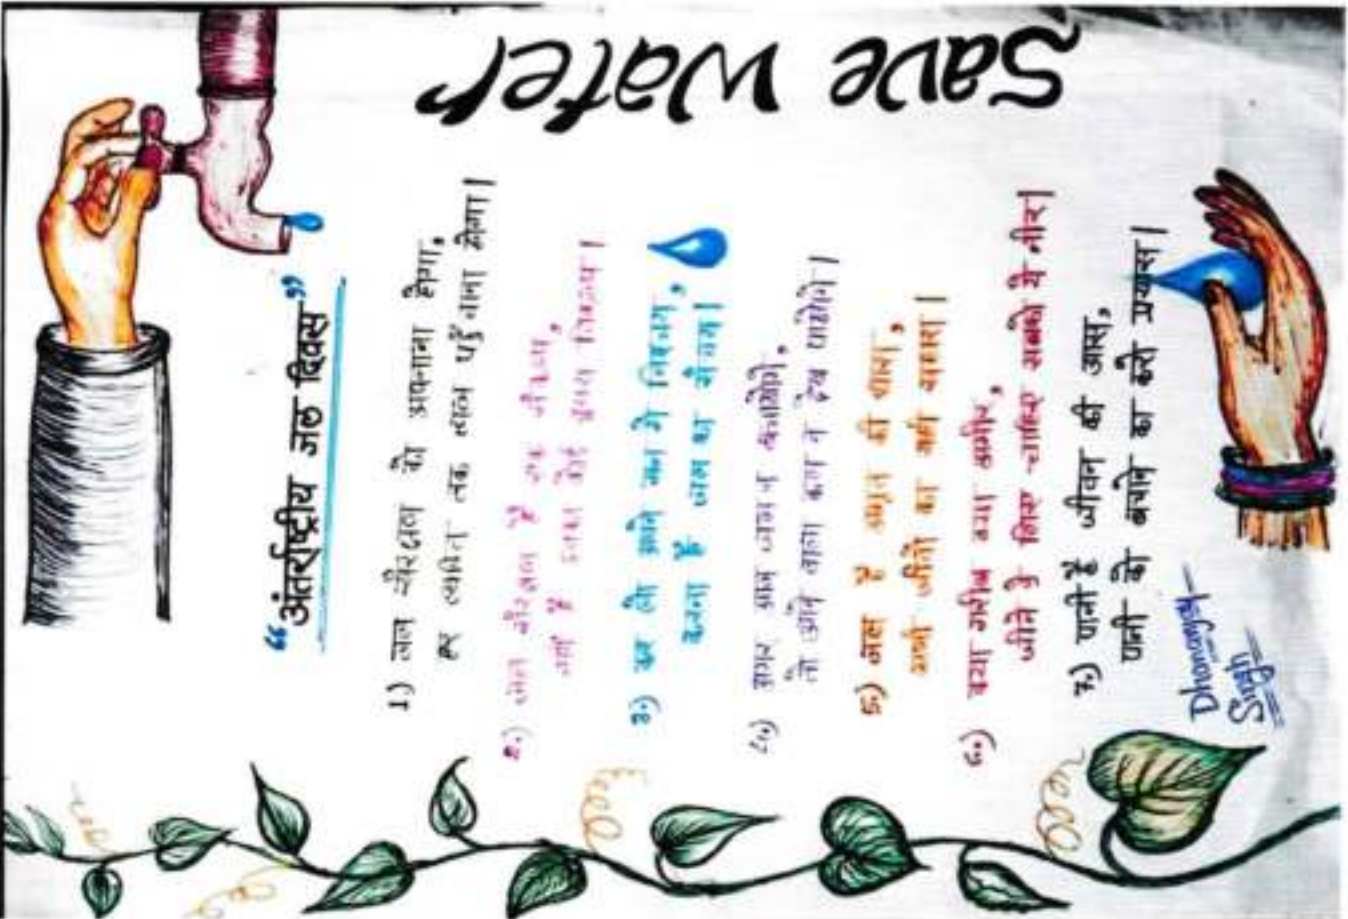 Save Water
“अंतर्राष्ट्रीय जल दिवस”
1) जल संरक्षण को अपनाना होगा,
हर व्यक्ति तक जल पहुँचाना होगा।
2.) जल संरक्षण है एक संकल्प,
नहीं है इसका कोई दूसरा विकल्प।
3.) कर लो अपने मन में निश्चय,
करना है जल का संचय।
4.) अगर जल न बचाओगे,
तो आने वाला कल न देख पाओगे।
5.) जल है अमृत की धारा,
सभी जीवों का यही सहारा।
6.) क्या गरीब क्या अमीर,
जीने के लिए चाहिए सबको ये नीर।
7.) पानी है जीवन की आस,
पानी को बचाने का करो प्रयास।
Dhananjay
Singh